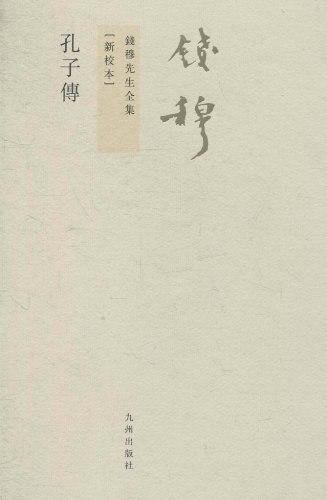 錢穆
錢穆先生全集
［新校本］
孔子傳
九州出版社